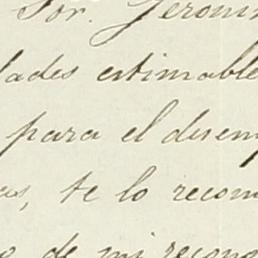 Sor. Jeroni
lades estimable
para el desem
as, te lo recom
o de mi recono